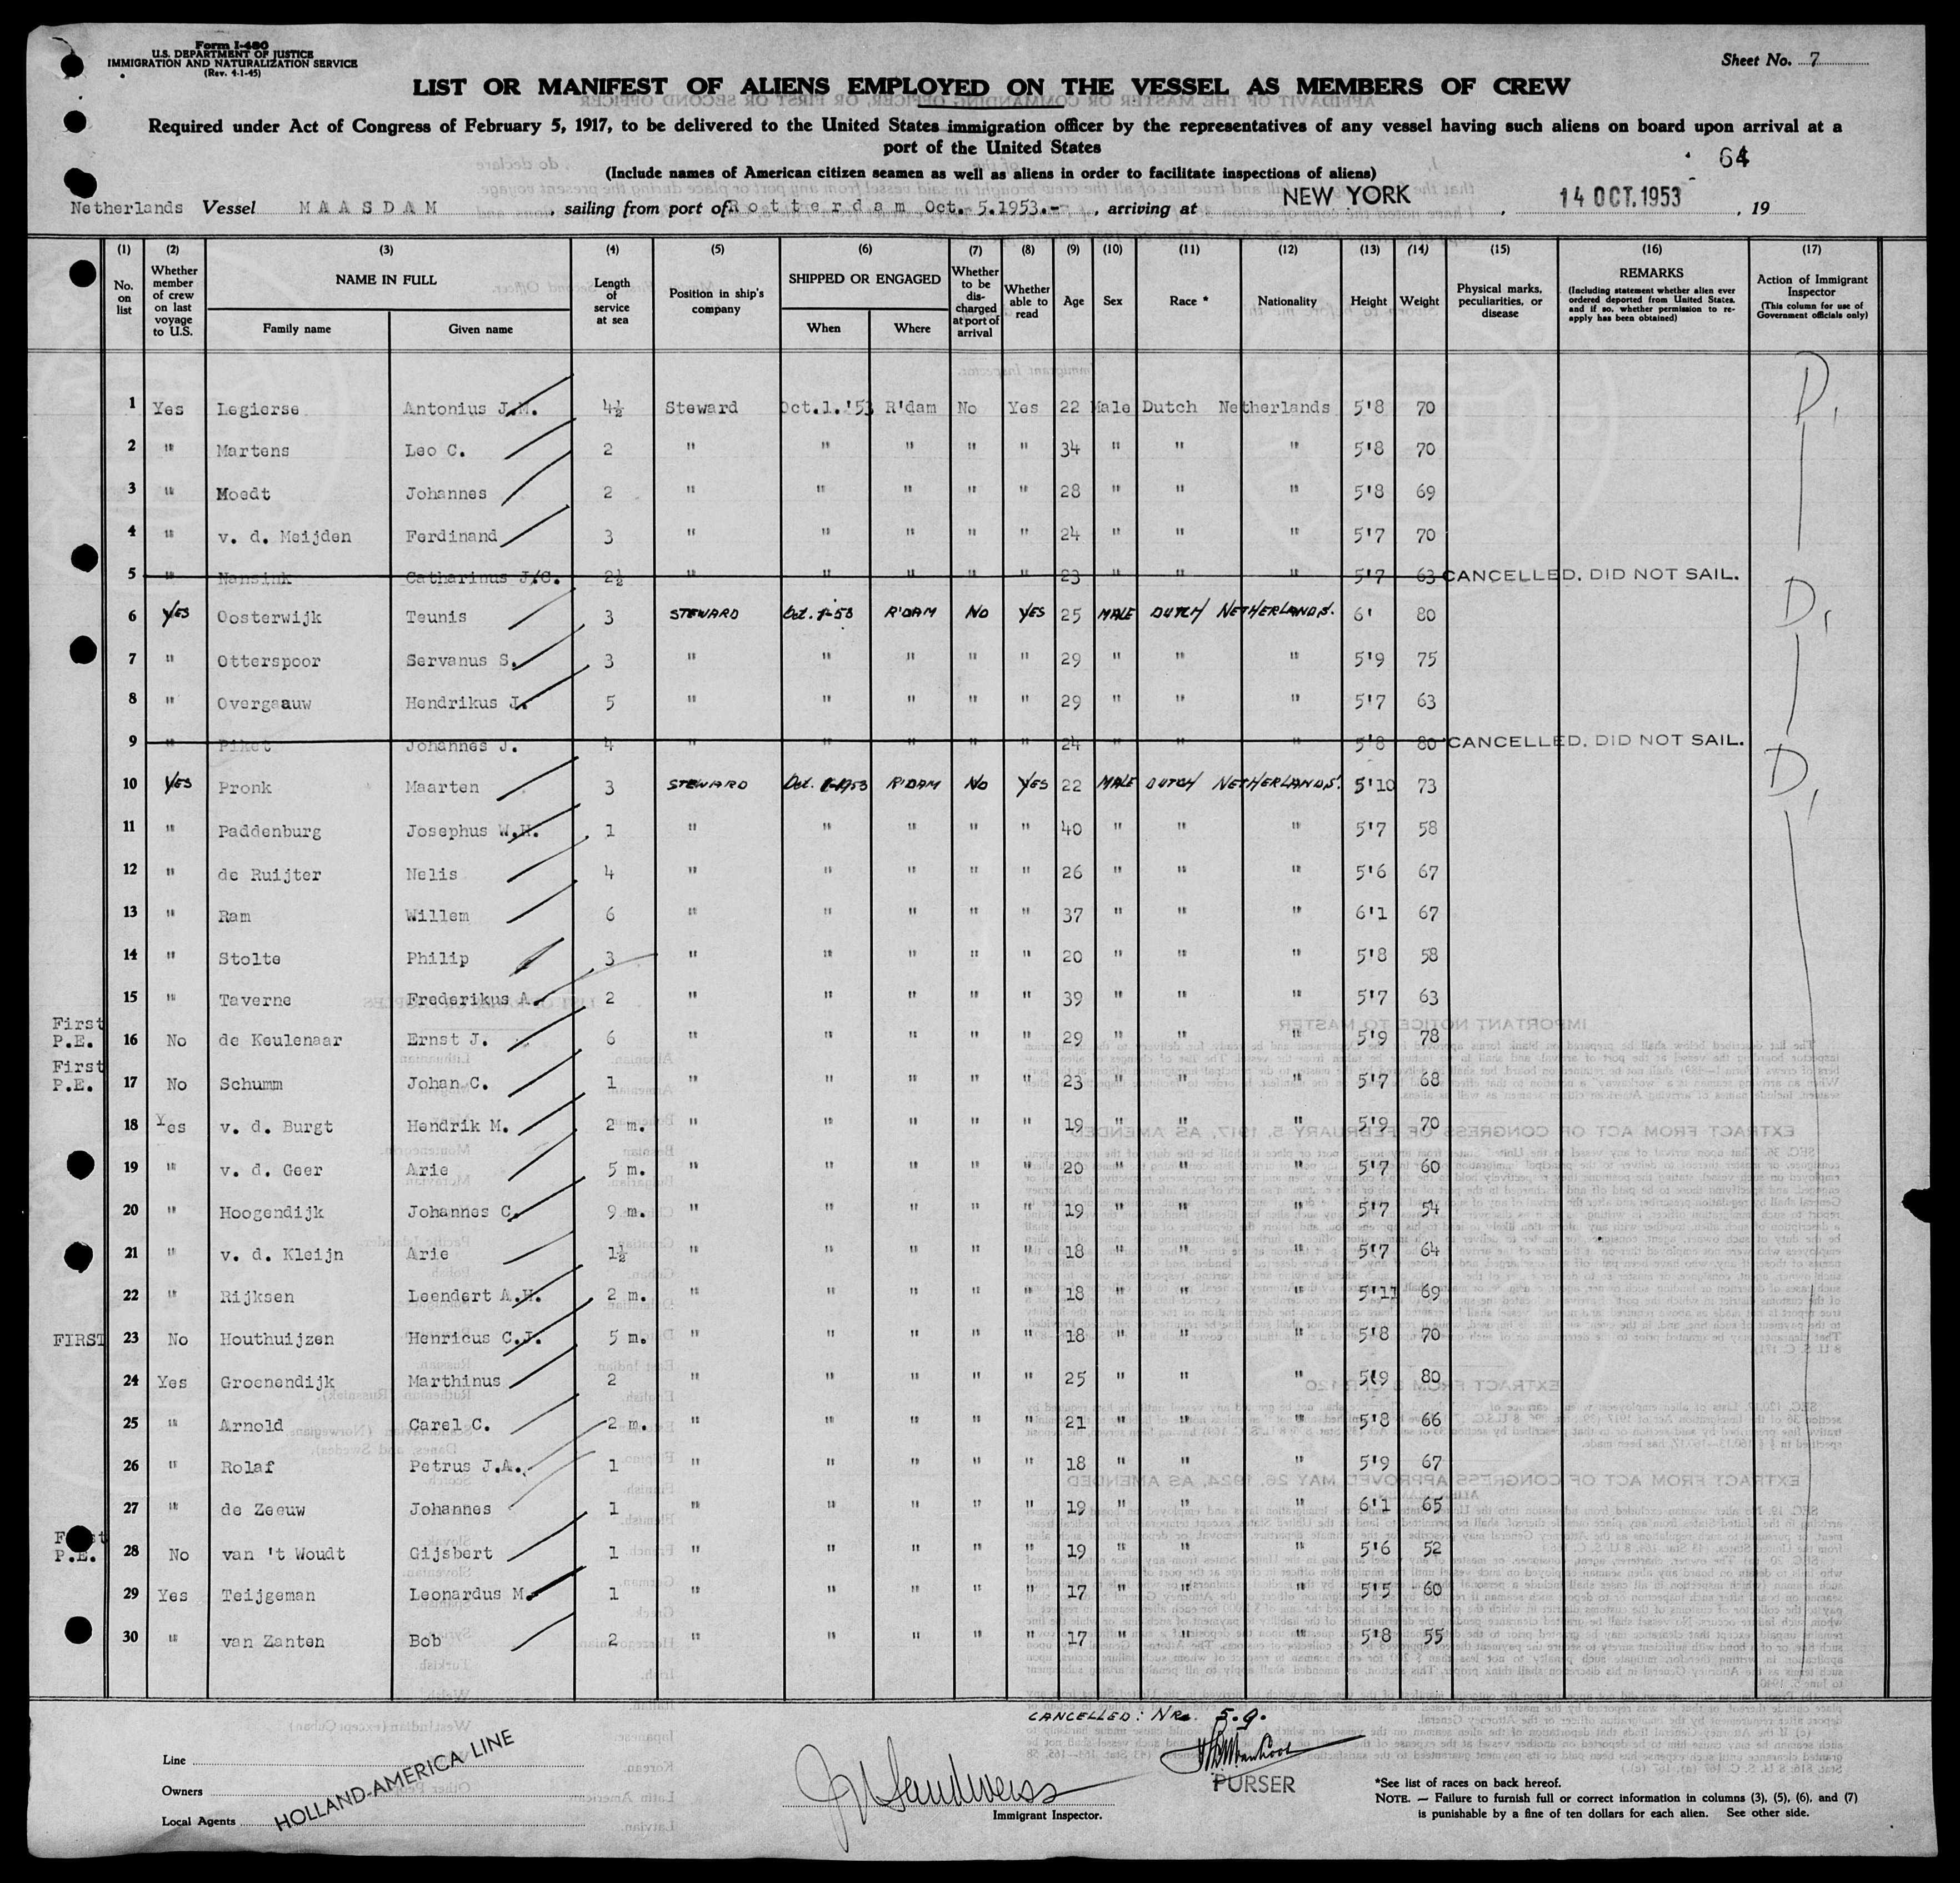 Form I-480
U.S. DEPARTMENT OF JUSTICE
IMMIGRATION AND NATURALIZATION SERVICE
(Rev. 4-1-45)
Sheet No. 7
LIST OR MANIFEST OF ALIENS EMPLOYED ON THE VESSEL AS MEMBERS OF CREW
Required under Act of Congress of February 5, 1917, to be delivered to the United States immigration officer by the representatives of any vessel having such aliens on board upon arrival at a
port of the United States
64
(Include names of American citizen seamen as well as aliens in order to facilitate inspections of aliens)
Netherlands Vessel MAASDAM, sailing from port of Rotterdam Oct. 5.1953.-, arriving at NEW YORK, 14 OCT. 1953, 19
(1) (2) (3) (4) (5) (6) (7) (8) (9) (10) (11) (12) (13) (14) (15) (16) (17)
No. on list
Whether member of crew on last voyage to U.S.
NAME IN FULL
Family name Given name
Length of service at sea
Position in ship's company
SHIPPED OR ENGAGED
When Where
Whether to be discharged at port of arrival
Whether able to read
Age Sex Race * Nationality Height Weight
Physical marks, peculiarities, or disease
REMARKS
(Including statement whether alien ever ordered deported from United States, and if so, whether permission to re-apply has been obtained)
Action of Immigrant Inspector
(This column for use of Government officials only)
1 Yes Legierse Antonius J.M. 4½ Steward Oct.1.'53 R'dam No Yes 22 Male Dutch Netherlands 5'8 70 D,
2 " Martens Leo C. 2 " " " " " 34 " " " 5'8 70
3 " Moedt Johannes 2 " " " " " 28 " " " 5'8 69
4 " v. d. Meijden Ferdinand 3 " " " " " 24 " " " 5'7 70
5 " Nansink Catharinus J.C. 2½ " " " " " 23 " " " 5'7 63 CANCELLED. DID NOT SAIL.
6 YES Oosterwijk Teunis 3 STEWARD Oct. 1-53 R'DAM NO YES 25 MALE DUTCH NETHERLANDS. 6' 80 D,
7 " Otterspoor Servanus S. 3 " " " " " 29 " " " 5'9 75
8 " Overgaauw Hendrikus J. 5 " " " " " 29 " " " 5'7 63
9 " Piket Johannes J. 4 " " " " " 24 " " " 5'8 80 CANCELLED. DID NOT SAIL.
10 YES Pronk Maarten 3 STEWARD Oct. 1-1953 R'DAM NO YES 22 MALE DUTCH NETHERLANDS. 5'10 73 D,
11 " Paddenburg Josephus W.H. 1 " " " " " 40 " " " 5'7 58
12 " de Ruijter Nelis 4 " " " " " 26 " " " 5'6 67
13 " Ram Willem 6 " " " " " 37 " " " 6'1 67
14 " Stolte Philip 3 " " " " " 20 " " " 5'8 58
15 " Taverne Frederikus A. 2 " " " " " 39 " " " 5'7 63
First P.E. 16 No de Keulenaar Ernst J. 6 " " " " " 29 " " " 5'9 78
First P.E. 17 No Schumm Johan C. 1 " " " " " 23 " " " 5'7 68
18 Yes v. d. Burgt Hendrik M. 2 m. " " " " " 19 " " " 5'9 70
19 " v. d. Geer Arie 5 m. " " " " " 20 " " " 5'7 60
20 " Hoogendijk Johannes C. 9 m. " " " " " 19 " " " 5'7 54
21 " v. d. Kleijn Arie 1½ " " " " " 18 " " " 5'7 64
22 " Rijksen Leendert A.H. 2 m. " " " " " 18 " " " 5'11 69
FIRST 23 No Houthuijzen Henricus C.J. 5 m. " " " " " 18 " " " 5'8 70
24 Yes Groenendijk Marthinus 2 " " " " " 25 " " " 5'9 80
25 " Arnold Carel C. 2 m. " " " " " 21 " " " 5'8 66
26 " Rolaf Petrus J.A. 1 " " " " " 18 " " " 5'9 67
27 " de Zeeuw Johannes 1 " " " " " 19 " " " 6'1 65
First P.E. 28 No van 't Woudt Gijsbert 1 " " " " " 19 " " " 5'6 52
29 Yes Teijgeman Leonardus M. 1 " " " " " 17 " " " 5'5 60
30 " van Zanten Bob 2 " " " " " 17 " " " 5'8 55
CANCELLED: NRs. 5.9.
Line
Owners
Local Agents
HOLLAND-AMERICA LINE
Immigrant Inspector.
PURSER
*See list of races on back hereof.
NOTE. — Failure to furnish full or correct information in columns (3), (5), (6), and (7)
is punishable by a fine of ten dollars for each alien. See other side.